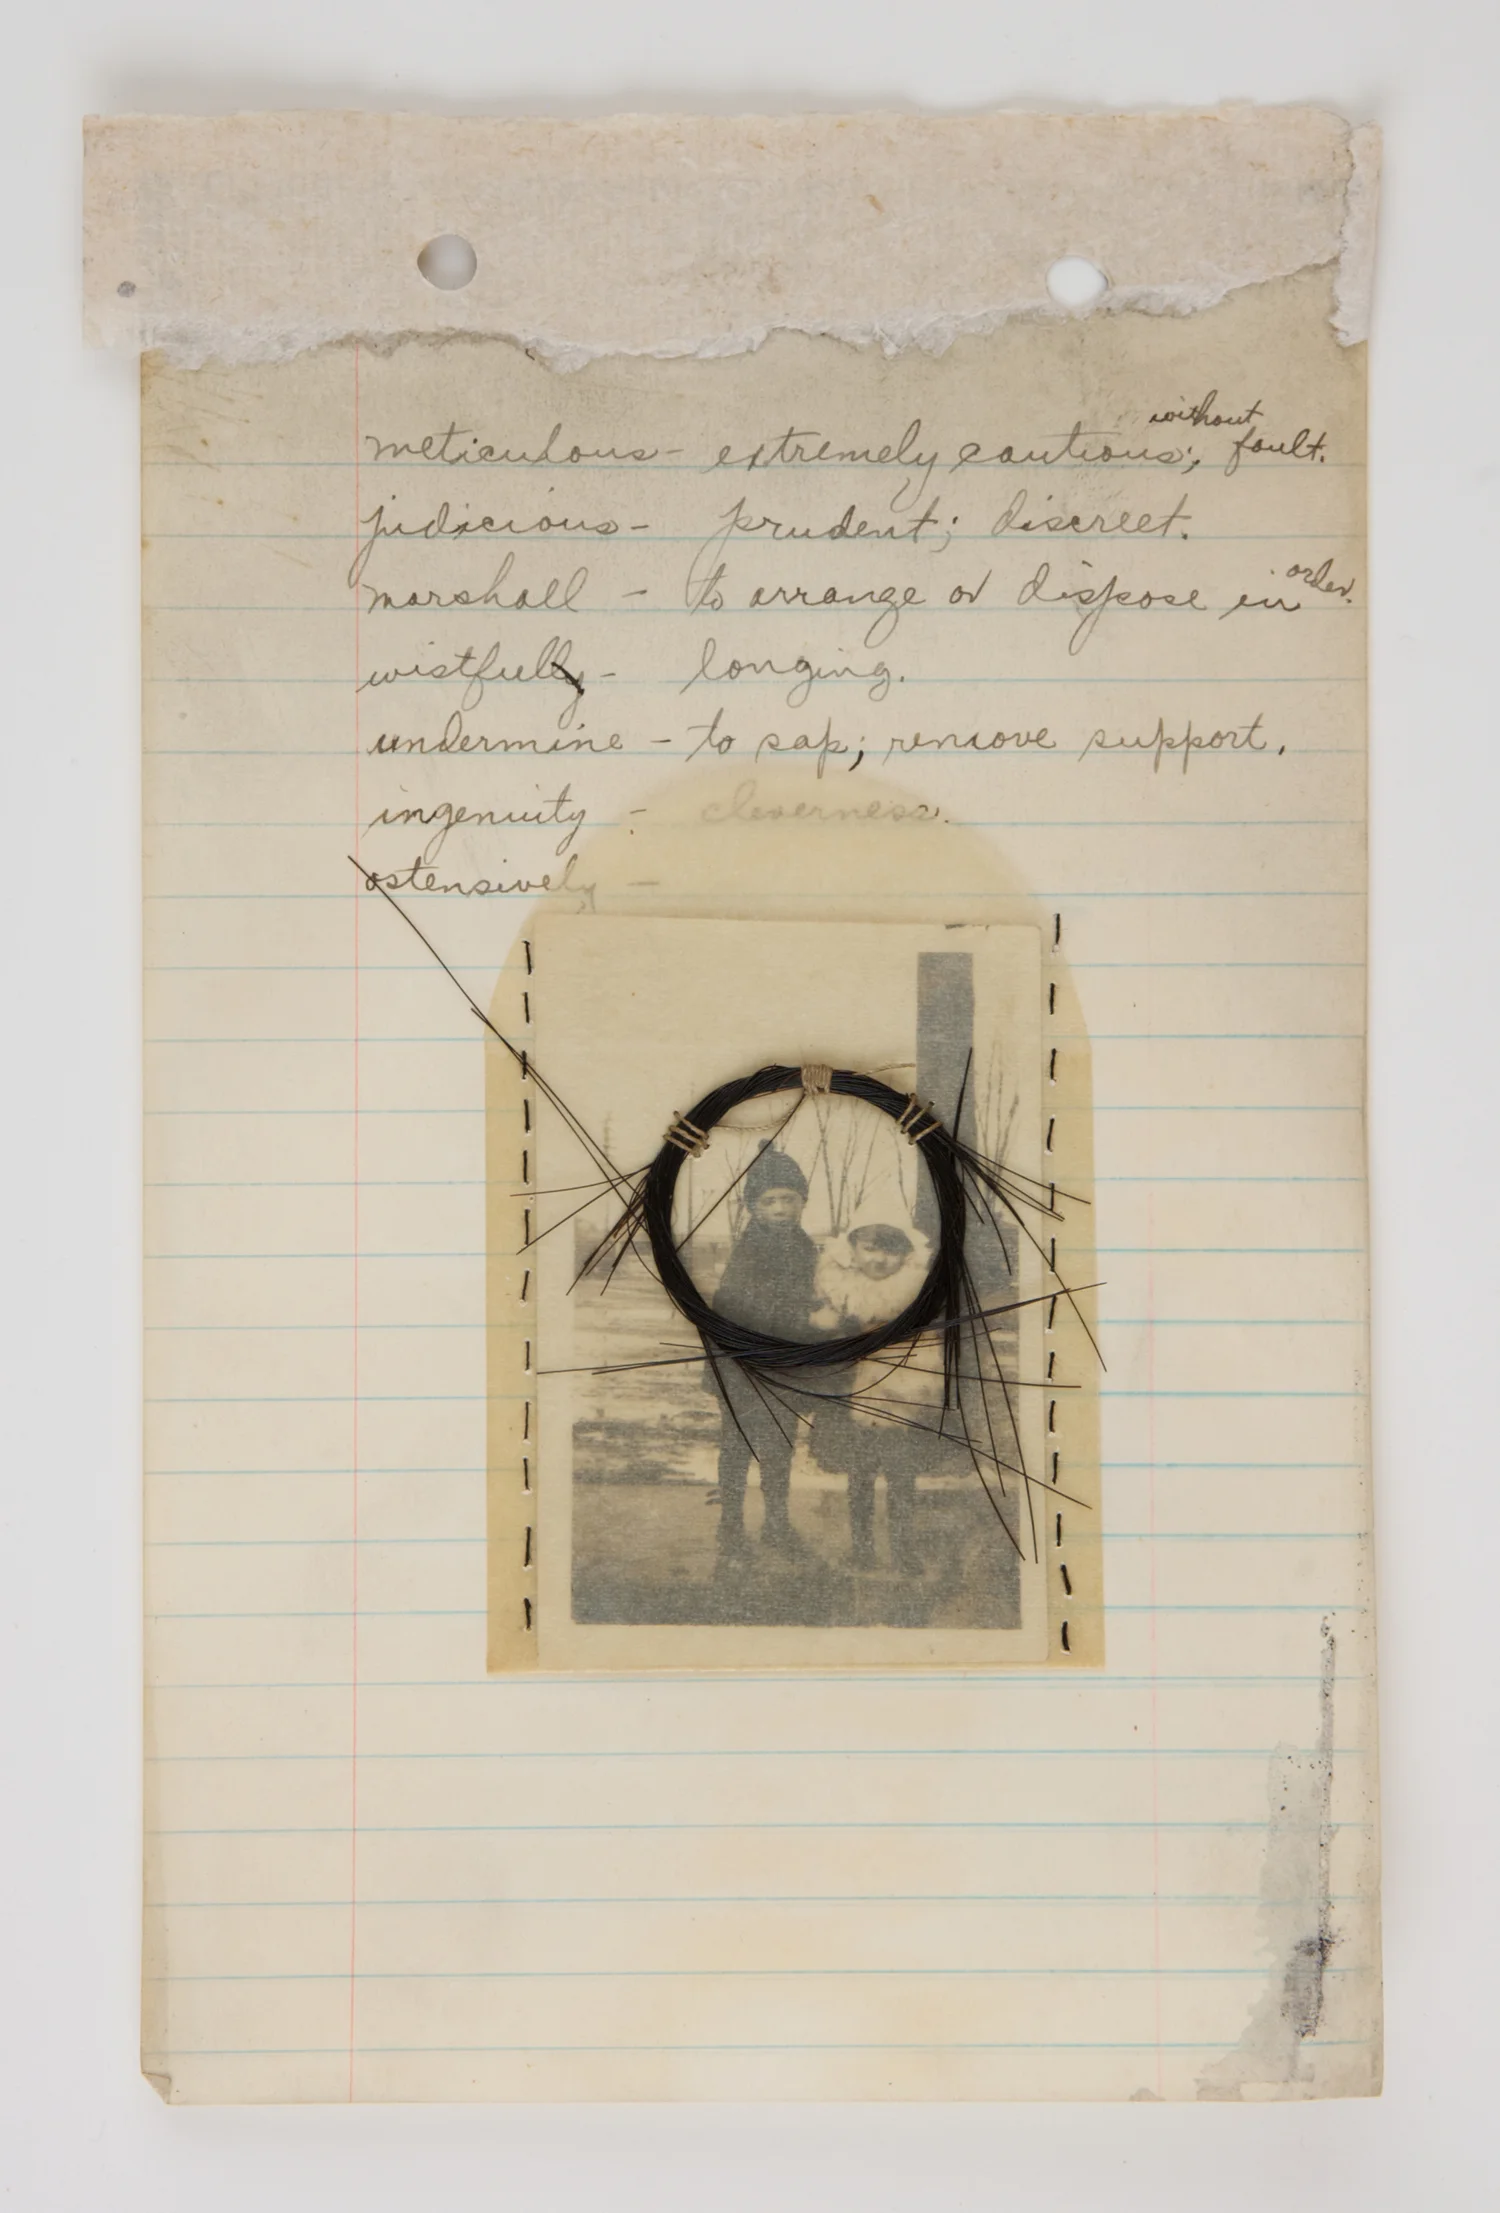 meticulous - extremely cautious; without fault.
judicious - prudent; discreet.
marshall - to arrange or dispose in order.
wistfully - longing.
undermine - to sap; remove support.
ingenuity - cleverness.
ostensively -